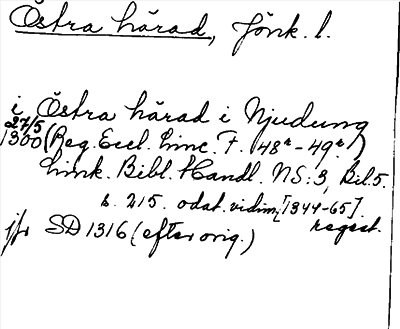 Östra härad, Jönk. l.
i Östra härad i Njudung
27/5
1300 (Reg. Eccl. Linc. F. 48a-49a)
Link. Bibl. Handl. NS:3, Bil. 5.
s. 215. odat. vidim. [1344-65].
regest.
jfr SD 1316 (efter orig.)